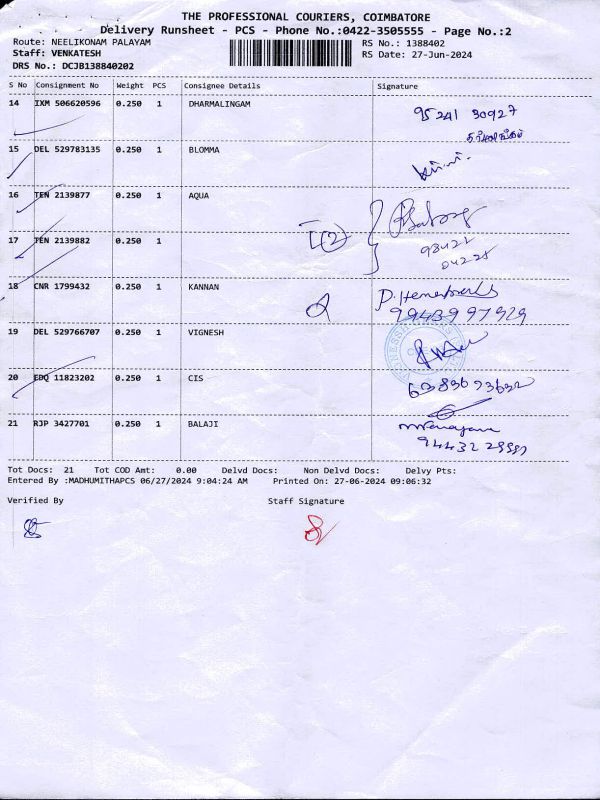 THE PROFESSIONAL COURIERS, COIMBATORE
Delivery Runsheet - PCS - Phone No.:0422-3505555 - Page No.:2
Route: NEELIKONAM PALAYAM RS No.: 1388402
Staff: VENKATESH RS Date: 27-Jun-2024
DRS No.: DCJB138840202
S No Consignment No Weight PCS Consignee Details Signature
14 IXM 506620596 0.250 1 DHARMALINGAM 95241 30927
15 DEL 529783135 0.250 1 BLOMMA
16 TEN 2139877 0.250 1 AQUA
17 TEN 2139882 0.250 1
18 CNR 1799432 0.250 1 KANNAN
19 DEL 529766707 0.250 1 VIGNESH
20 EDQ 11823202 0.250 1 CIS
21 RJP 3427701 0.250 1 BALAJI
Tot Docs: 21 Tot COD Amt: 0.00 Delvd Docs: Non Delvd Docs: Delvy Pts:
Entered By :MADHUMITHAPCS 06/27/2024 9:04:24 AM Printed On: 27-06-2024 09:06:32
Verified By Staff Signature